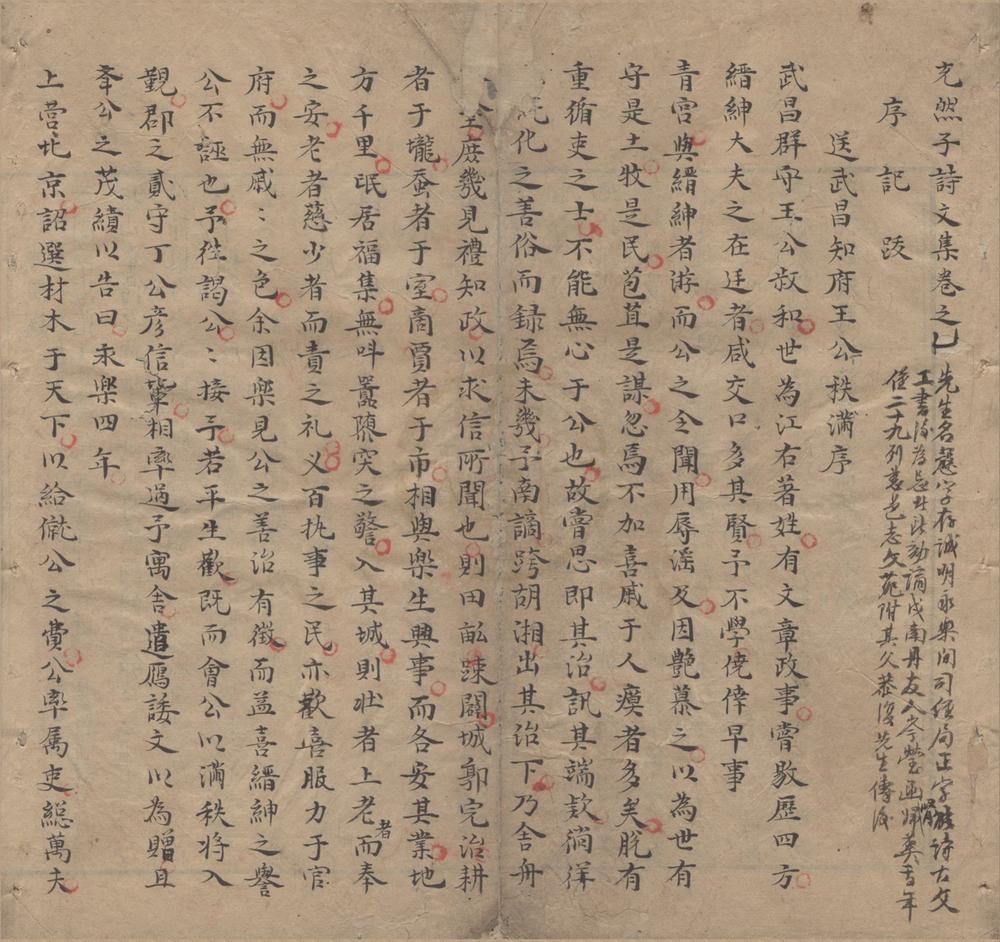 充然子詩文集卷之七
先生名䕫字存誠明永樂間司經局正字能詩古文
工書後為忌者所劾謫戍南丹友人
僅二十九列舊邑志文苑附其父恭復先生傳後
序 記 跋
送武昌知府王公秩滿序
武昌群守王公叔和世為江右著姓有文章政事嘗敭歷四方
縉紳大夫之在廷者咸交口多其賢予不學僥倖早事
青宮與縉紳者游而公之令聞用辱滛及因艷慕之以為世有
守是土牧是民苞苴是謀忽焉不加喜戚于人瘼者多矣脫有
重循吏之士不能無心于公也故嘗思即其治訊其端欵徜徉
化之善俗而録焉未幾予南謫跨胡湘出其治下乃舍舟
庶幾見禮知政以求信所聞也則田畝踈闢城郭完治耕
者于壠蚕者于室商賈者于市相與樂生興事而各安其業地
方千里氓居福集無呌囂隳突之警入其城則壯者上老者而奉
之安老者慈少者而責之礼义百执事之民亦歡喜服力于官
府而無戚〻之色余因樂見公之善治有徵而益喜縉紳之譽
公不誣也予往謁公〻接予若平生歡既而會公以滿秩将入
覲郡之貳守丁公彥信輩相率過予寓舍遣鴈諉文以為贈且
夆公之茂績以告曰永樂四年
上营北京詔選材木于天下以給僦公之費公率属吏総萬夫